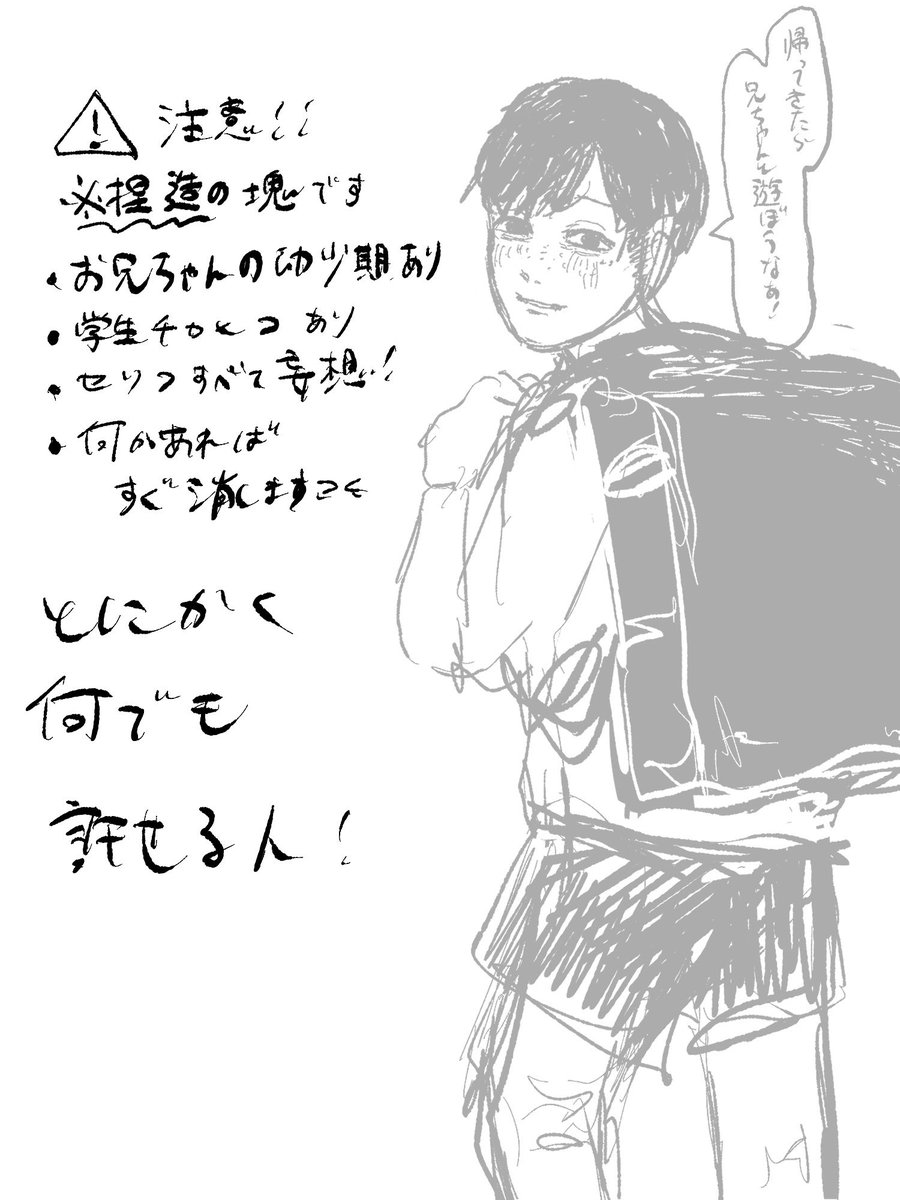 注意!!
※捏造の塊です
・お兄ちゃんの幼少期あり
・学生チカヒコあり
・セリフすべて妄想!
・何かあれば
すぐ消しますこも
とにかく
何でも
許せる人!
帰ってきたら
兄ちゃんと遊ぼうなぁ!